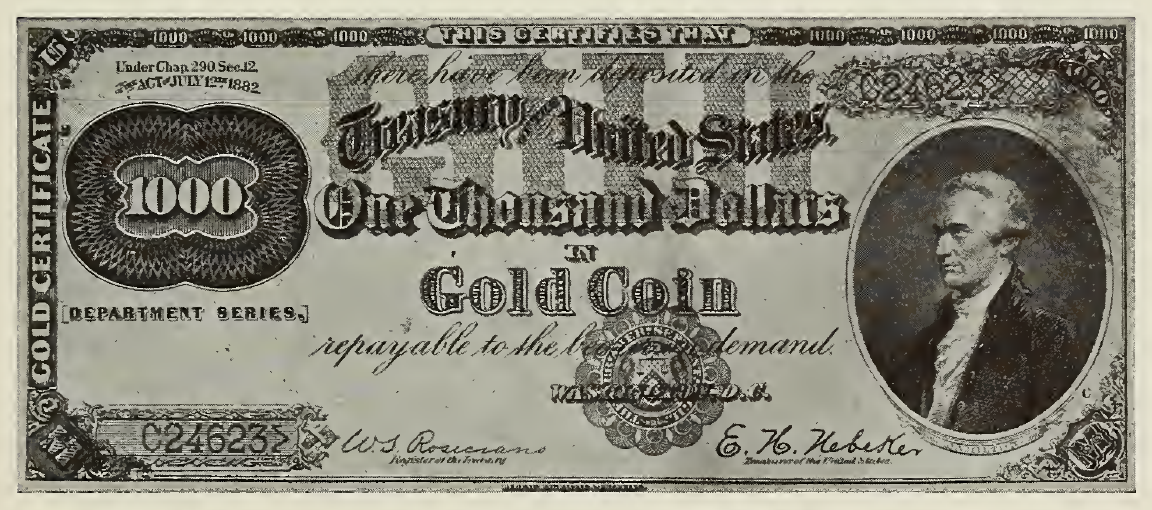 1000 1000 1000 THIS CERTIFIES THAT 1000 1000 1000 1000
Under Chap. 290. Sec. 12,
ACT of JULY 12TH 1882
there have been deposited in the
C246232
Treasury of the United States,
GOLD CERTIFICATE
1000
One Thousand Dollars
IN
Gold Coin
[DEPARTMENT SERIES.]
repayable to the demand.
WASHINGTON, D.C.
C
C24623
W S Rosecrans
Register of the Treasury
E. H. Nebeker
Treasurer of the United States.
M